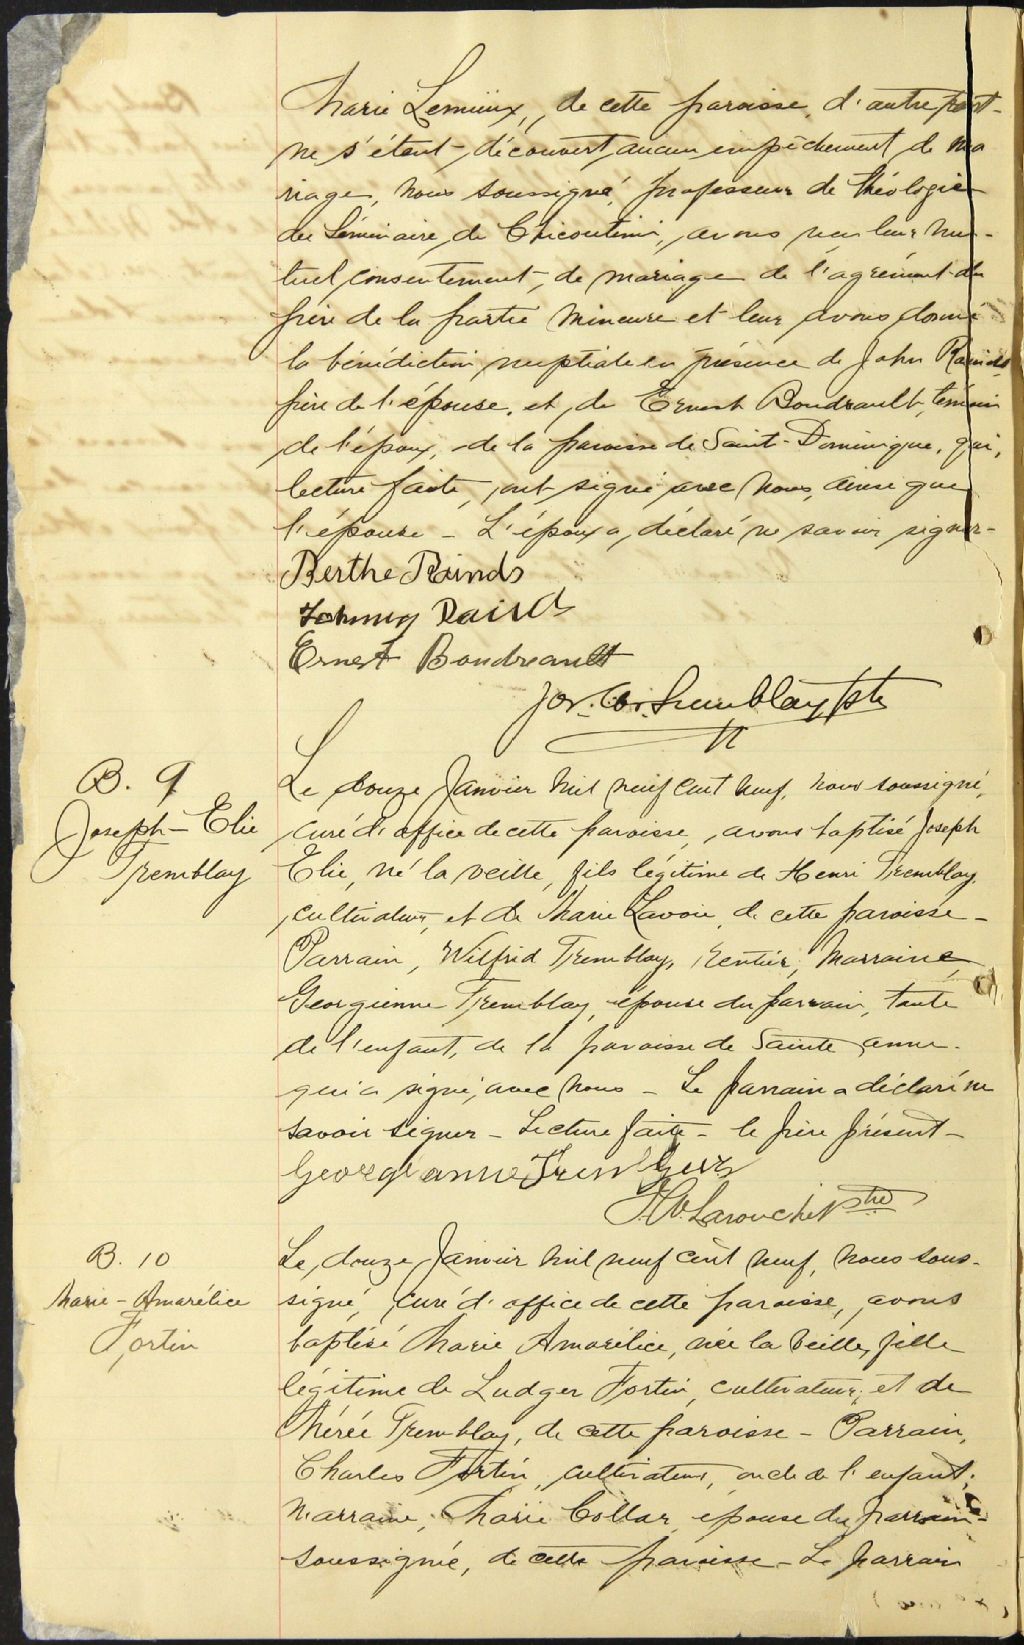 Marie Lemieux, de cette paroisse, d'autre part -
ne s'étant découvert aucun empêchement de ma
riage, nous soussigné, professeur de théologie
du Séminaire de Chicoutimi, avons reçu leur mu-
tuel consentement de mariage de l'agrément du
père de la partie mineure et leur avons donné
la bénédiction nuptiale en présence de John Rainds
père de l'épouse, et de Ernest Boudreault, témoin
de l'époux, de la paroisse de Saint-Dominique, qui,
lecture faite, ont signé avec nous, ainsi que
l'épouse - L'époux a déclaré ne savoir signer -
Berthe Rainds
Johnny Rainds
Ernest Boudreault
Jos. Tremblay Ptre
B. 9
Joseph-Elie
Tremblay
Le douze Janvier mil neuf cent neuf, nous soussigné,
curé d'office de cette paroisse, avons baptisé Joseph
Elie, né la veille, fils légitime de Henri Tremblay,
cultivateur, et de Marie Lavoie, de cette paroisse -
Parrain, Wilfrid Tremblay, rentier, Marraine,
Georgienne Tremblay, épouse du parrain, tante
de l'enfant, de la paroisse de Sainte Anne -
qui a signé avec nous - Le parrain a déclaré ne
savoir signer - Lecture faite - le père présent -
Georgianne Tremblay
Larouche Ptre
B. 10
Marie-Amarélice
Fortin
Le douze Janvier mil neuf cent neuf, nous sous-
signé, curé d'office de cette paroisse, avons
baptisé Marie Amarélice, née la veille, fille
légitime de Ludger Fortin, cultivateur, et de
Mérée Tremblay, de cette paroisse - Parrain,
Charles Fortin, cultivateur, oncle de l'enfant;
Marraine, Marie Collar, épouse du parrain -
soussignée, de cette paroisse - Le parrain